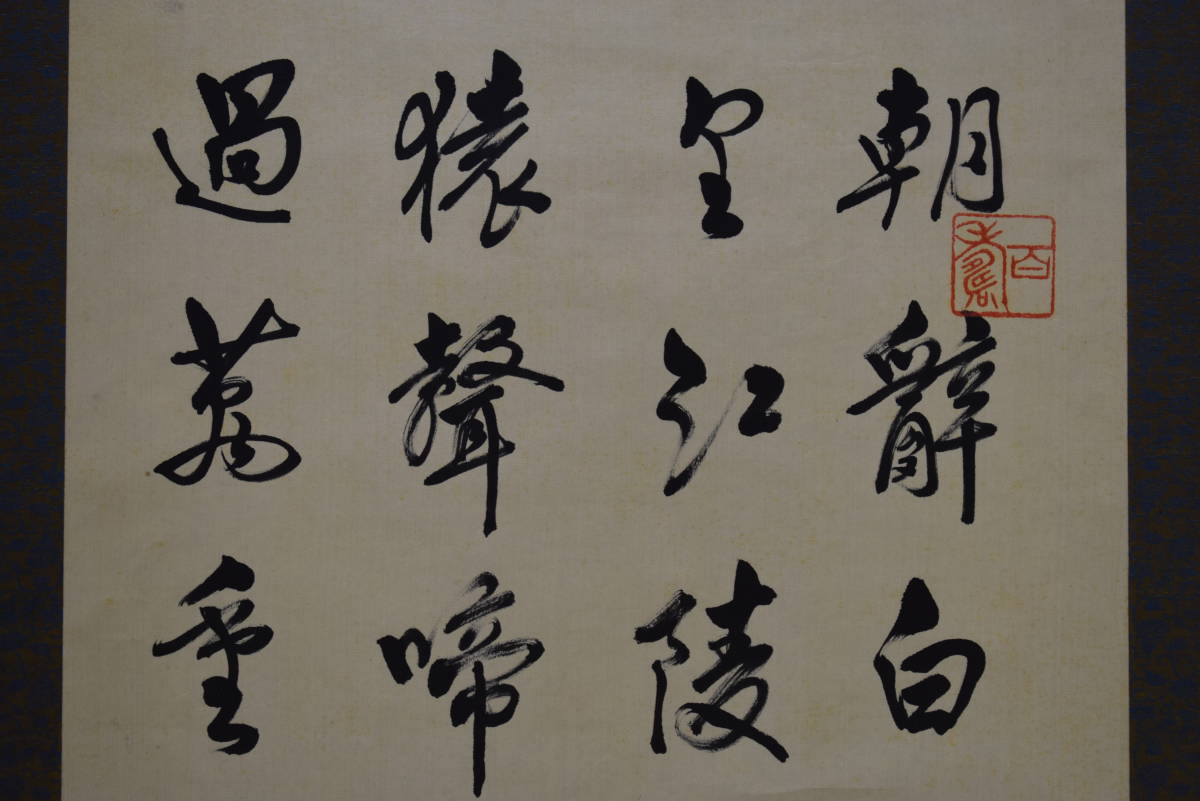 朝辭白
里江陵
猿聲啼
過萬重